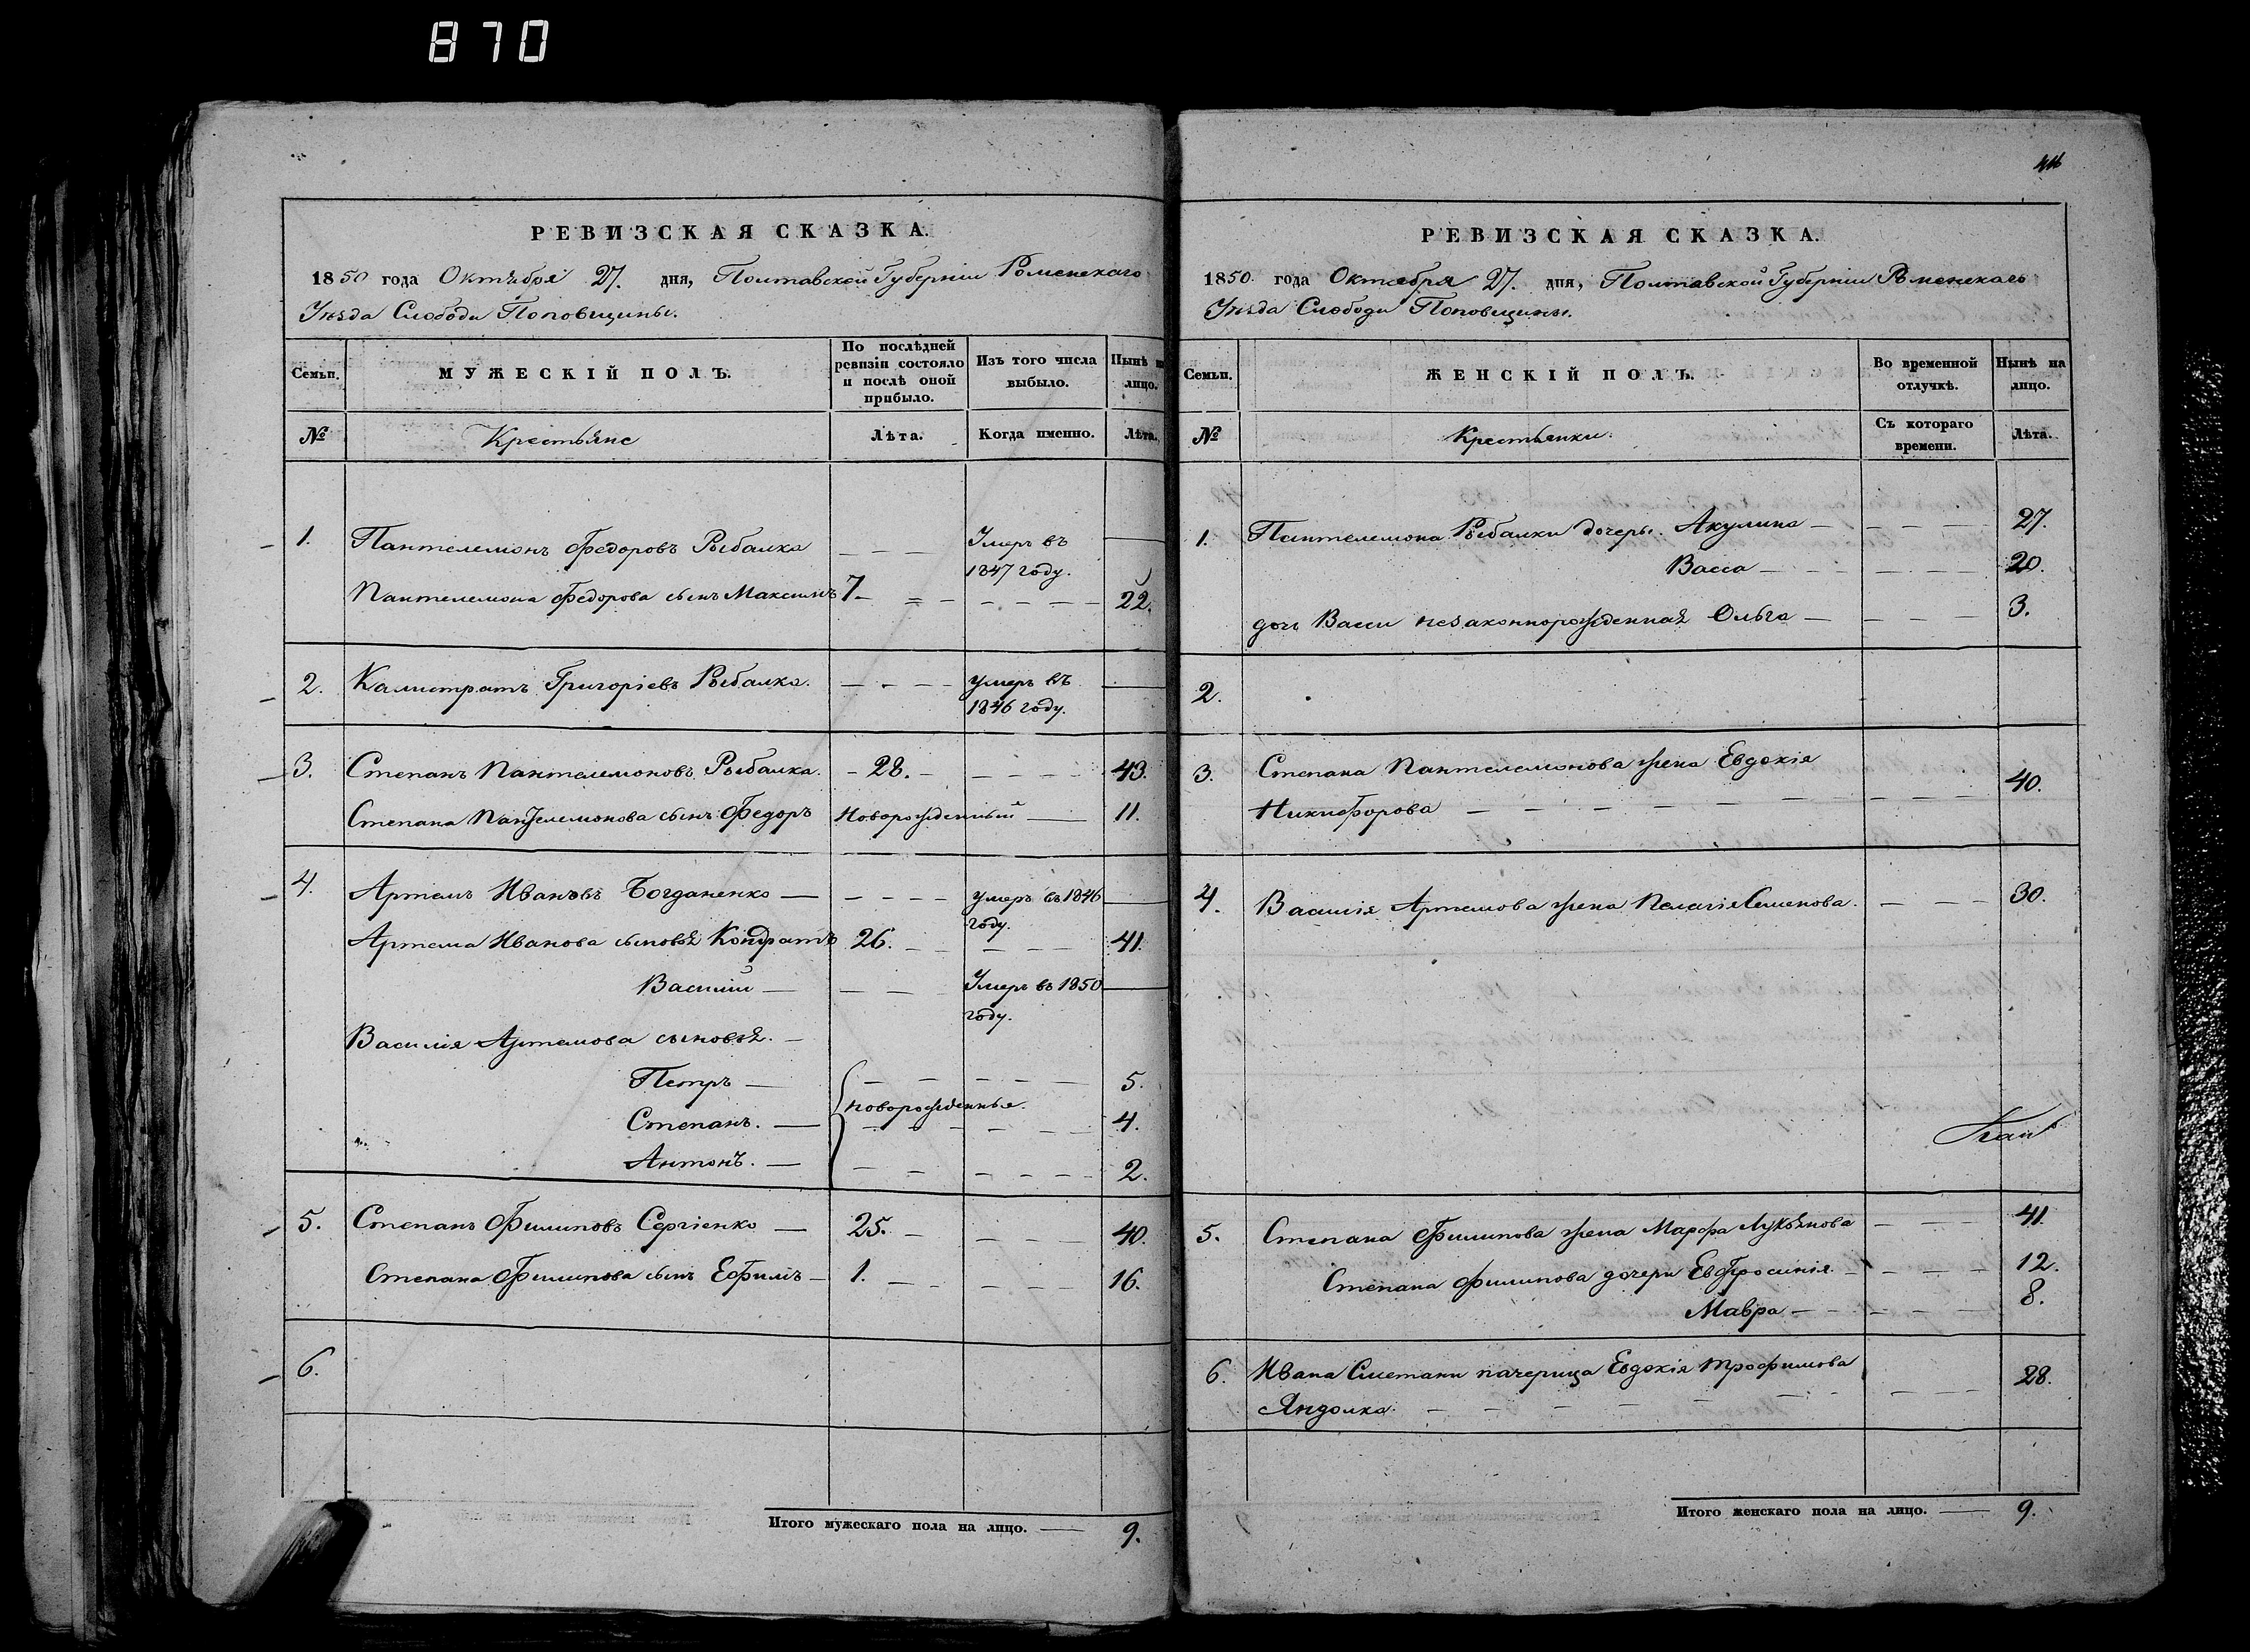 870
РЕВИЗСКАЯ СКАЗКА.
1850 года Октября 27. дня, Полтавской Губерніи Роменскаго
Уѣзда Слободи Поповщины.
Семьи.
МУЖЕСКІЙ ПОЛЪ.
По послѣдней
ревизіи состояло
и послѣ оной
прибыло.
Изъ того числа
выбыло.
Нынѣ на
лицо.
№
Крестьяне
Лѣта.
Когда именно.
Лѣта.
1. Пантелемонъ Федоровъ Рыбалка Умеръ въ
1847 году.
Пантелемона Федорова сынъ Максимъ 7 22.
2. Калистратъ Григоріевъ Рыбалка. умеръ въ
1846 году.
3. Степанъ Пантелемоновъ Рыбалка. 28. 43.
Степана Пантелемонова сынъ Федоръ Новорожденный 11.
4. Артемъ Ивановъ Богданенко умеръ въ 1846
году.
Артема Иванова сыновья Кондратъ 26. 41.
Василий Умеръ въ 1850
году.
Василія Артемова сыновья.
Петръ 5.
новорожденные.
Степанъ. 4.
Антонъ. 2.
5. Степанъ Филиповъ Сергіенко 25. 40.
Степана Филипова сынъ Ефимъ 1. 16.
6.
Итого мужескаго пола на лицо. 9.
РЕВИЗСКАЯ СКАЗКА.
1850 года Октября 27. дня, Полтавской Губерніи Роменскаго
Уѣзда Слободи Поповщины.
Семьи.
ЖЕНСКІЙ ПОЛЪ.
Во временной
отлучкѣ.
Нынѣ на
лицо.
№
Крестьянки.
Съ котораго
времени.
Лѣта.
1. Пантелемона Рыбалки дочеры. Акулина 27.
Васса 20.
дочь Васси незаконнорожденная Ольга 3.
2.
3. Степана Пантелемонова жена Евдокія
Никифорова 40.
4. Василія Артемова жена Пелагія Семенова. 30.
5. Степана Филипова жена Марфа Лукьянова 41.
Степана Филипова дочери Евфросинія 12.
Мавра 8.
6. Ивана Сметани пачерица Евдокія Трофимова 28.
Яндолка.
Итого женскаго пола на лицо. 9.